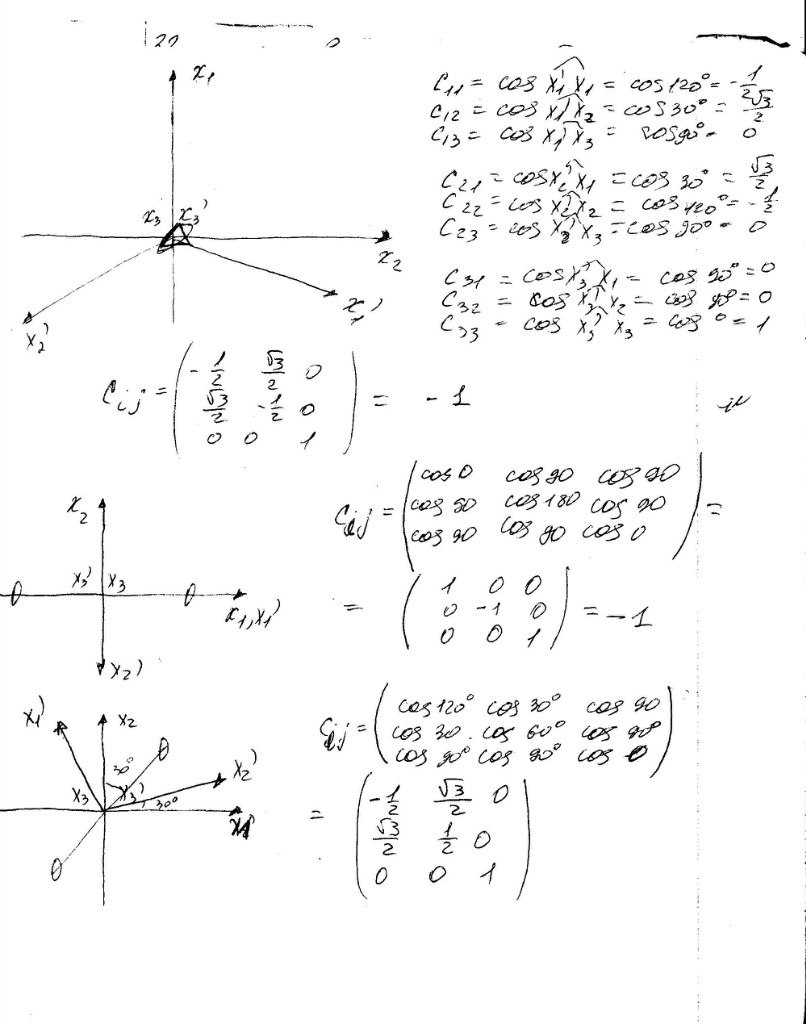 20
x₁
x₃ x₃'
x₂
x₁'
x₂'
C₁₁ = cos x₁' x₁ = cos 120° = -1/2
C₁₂ = cos x₁' x₂ = cos 30° = √3/2
C₁₃ = cos x₁' x₃ = cos 90° = 0
C₂₁ = cos x₂' x₁ = cos 30° = √3/2
C₂₂ = cos x₂' x₂ = cos 120° = -1/2
C₂₃ = cos x₂' x₃ = cos 90° = 0
C₃₁ = cos x₃' x₁ = cos 90° = 0
C₃₂ = cos x₃' x₂ = cos 90° = 0
C₃₃ = cos x₃' x₃ = cos 0° = 1
Cij = ( -1/2 √3/2 0
√3/2 -1/2 0
0 0 1 ) = -1
x₂
x₃' x₃
x₁, x₁'
x₂'
Cij = ( cos 0 cos 90 cos 90
cos 90 cos 180 cos 90
cos 90 cos 90 cos 0 ) =
= ( 1 0 0
0 -1 0
0 0 1 ) = -1
x₁' x₂
30°
x₂'
x₃ x₃' 30°
x₁
Cij = ( cos 120° cos 30° cos 90
cos 30 cos 60° cos 90°
cos 90° cos 90° cos 0 )
= ( -1/2 √3/2 0
√3/2 1/2 0
0 0 1 )